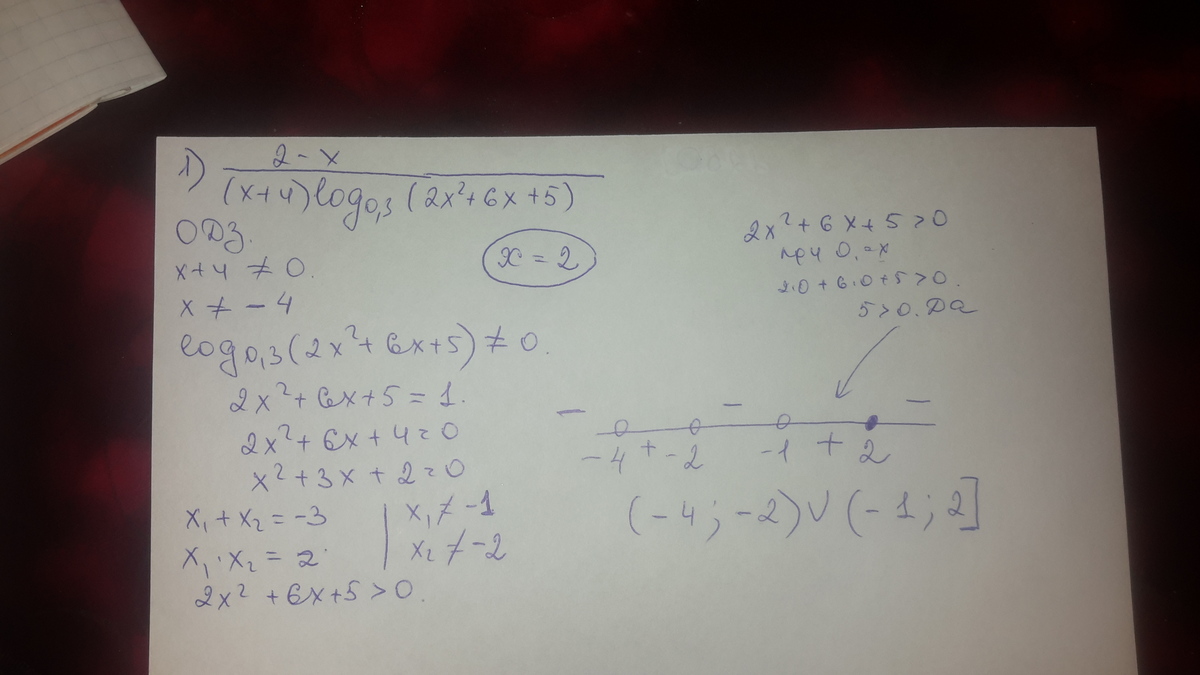 1) 2 - x
(x+4) log0,3 (2x²+6x+5)
ОДЗ.
x+4 ≠ 0.
x ≠ -4
x = 2
log0,3 (2x²+6x+5) ≠ 0.
2x²+6x+5 = 1.
2x²+6x+4 = 0
x²+3x+2 = 0
x₁+x₂ = -3
x₁·x₂ = 2
x₁ ≠ -1
x₂ ≠ -2
2x²+6x+5 > 0.
2x²+6x+5 > 0
при 0. = x
2·0+6·0+5 > 0.
5 > 0. Да
- - -
-4 + -2 -1 + 2
(-4; -2) ∨ (-1; 2]